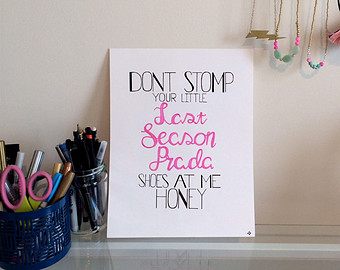 DONT STOMP
YOUR LITTLE
Last
Season
Prada
SHOES AT ME
HONEY